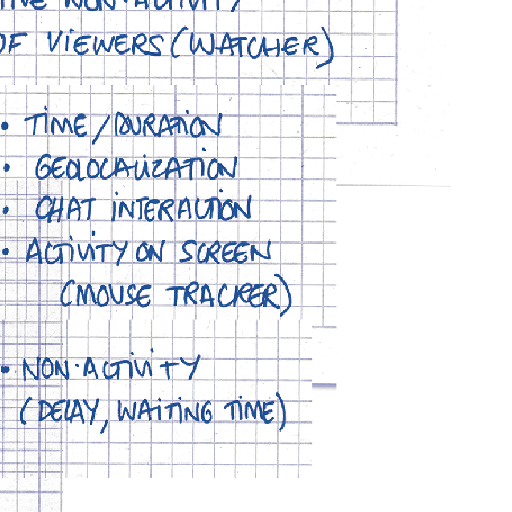 NON-ACTIVITY
OF VIEWERS (WATCHER)
• TIME/DURATION
• GEOLOCALIZATION
• CHAT INTERACTION
• ACTIVITY ON SCREEN
(MOUSE TRACKER)
• NON-ACTIVITY
(DELAY, WAITING TIME)